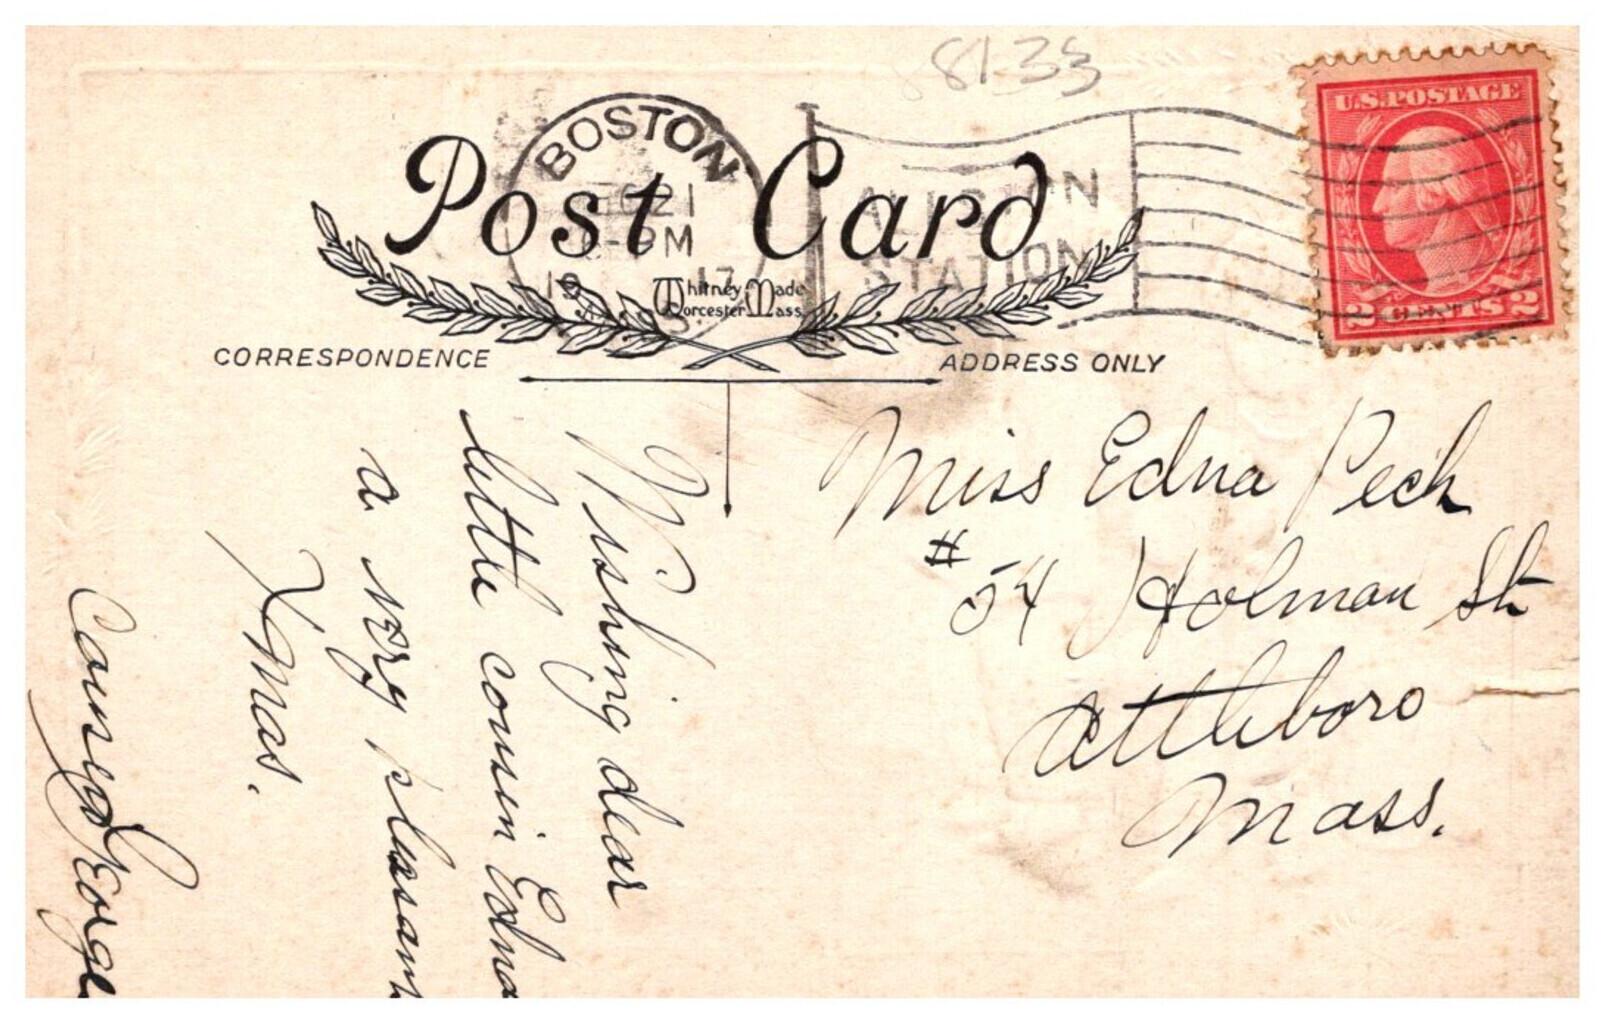 8133
U.S. POSTAGE
2 CENTS 2
BOSTON
DEC 21
PM
19 17
MASS.
ALLSTON
STATION
Post Card
Whitney Made
Worcester Mass
CORRESPONDENCE
ADDRESS ONLY
Wishing dear
little cousin Edna
a very pleasant
Xmas.
Cousin George
Miss Edna Peck
# 54 Holman St
Attleboro
Mass.